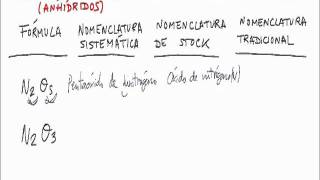 (ANHÍDRIDOS)
FÓRMULA NOMENCLATURA SISTEMÁTICA NOMENCLATURA DE STOCK NOMENCLATURA TRADICIONAL
N2 O5 Pentaóxido de dinitrógeno Óxido de nitrógeno(V)
N2 O3